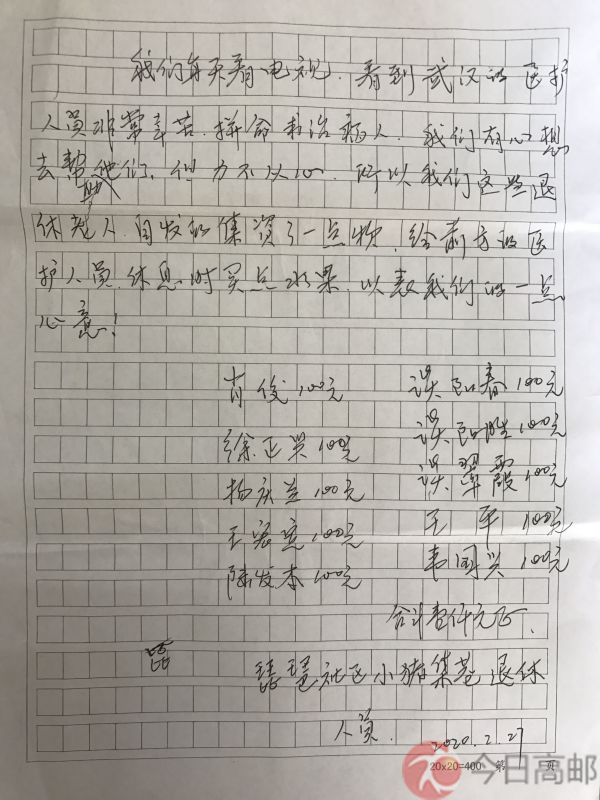 我们每天看电视.看到武汉的医护
人员非常辛苦.拼命救治病人.我们有心想
去帮助他们,但力不从心.所以我们这些退
休老人.自发的集资了一点钱.给前方的医
护人员.休息时买点水果.以表我们的一点
心意!
肖俊100元 谈弘春100元
徐正兴100元 谈弘胜100元
杨庆兰100元 谈翠霞100元
王宏宽100元 王平100元
陆发本100元 韦国兴100元
合计壹仟元正.
琵琶社区小猪集巷退休
人员.
2020.2.27
20x20=400 第 页
今日高邮